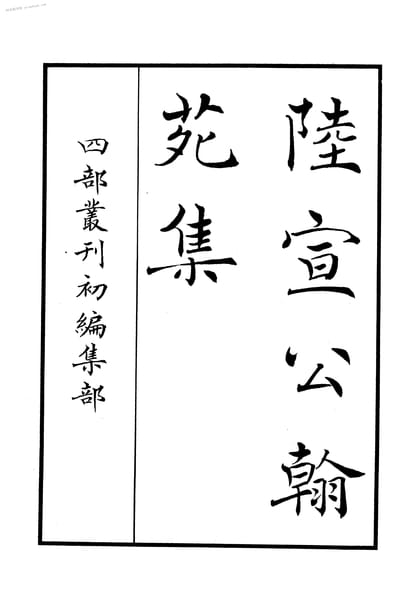 陸宣公翰
苑集
四部叢刊初編集部